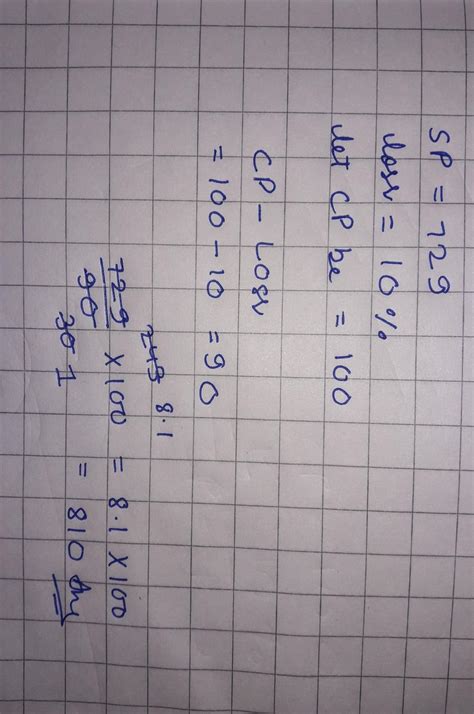 SP = 729
loss = 10%
let CP be = 100
CP - Loss
= 100 - 10 = 90
243 8.1
729 X 100 = 8.1 X 100
90
30 1 = 810 Ans